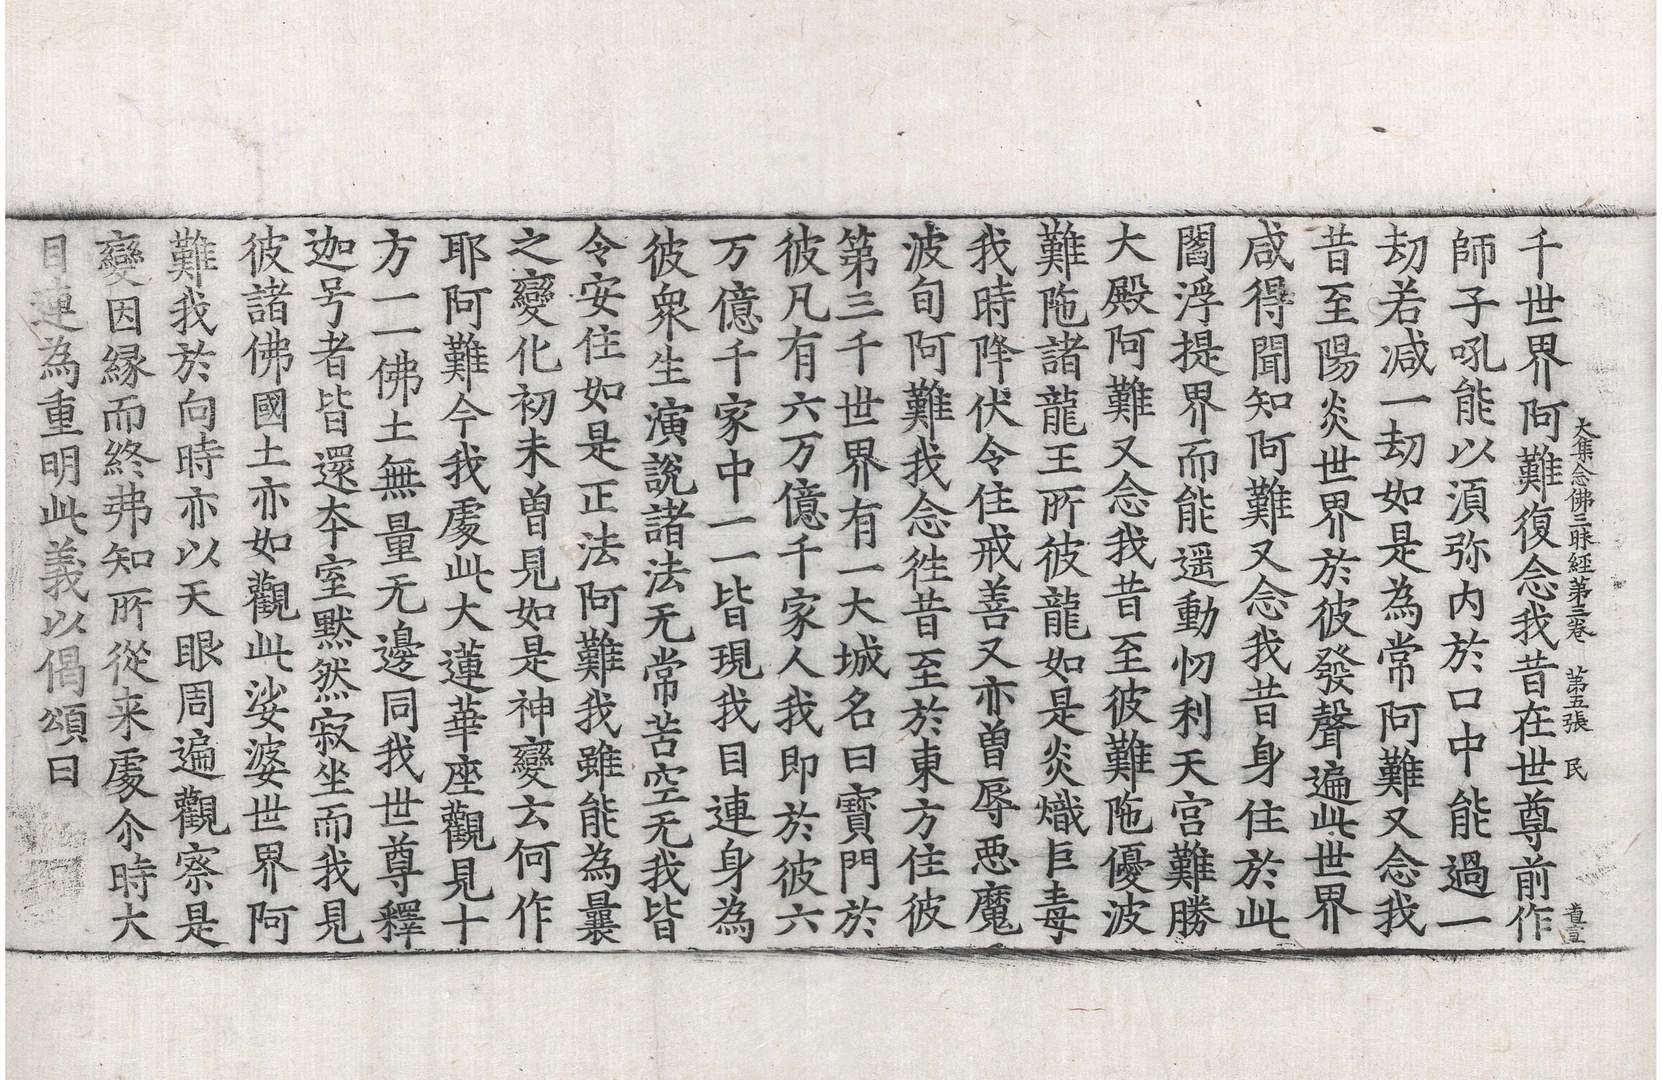 大集念佛三昧経苐三卷　苐五張　民
道宣
千世界阿難復念我昔在世尊前作
師子吼能以湏弥内於口中能過一
劫若减一劫如是為常阿難又念我
昔至陽炎世界於彼發聲遍此世界
咸得聞知阿難又念我昔身住於此
閻浮提界而能遥動忉利天宫難勝
大殿阿難又念我昔至彼難陁優波
難陁諸龍王所彼龍如是炎熾巨毒
我時降伏令住戒善又亦曽辱惡魔
波旬阿難我念徃昔至於東方住彼
第三千世界有一大城名曰寳門於
彼凡有六万億千家人我即於彼六
万億千家中一一皆現我目連身為
彼衆生演說諸法无常苦空无我皆
令安住如是正法阿難我雖能為曩
之變化初未曽見如是神變云何作
耶阿難今我處此大蓮華座觀見十
方一一佛土無量无邊同我世尊釋
迦号者皆還夲室默然寂坐而我見
彼諸佛國土亦如觀此娑婆世界阿
難我於向時亦以天眼周遍觀察是
變因縁而終弗知所從来處尒時大
目連為重明此義以偈頌曰